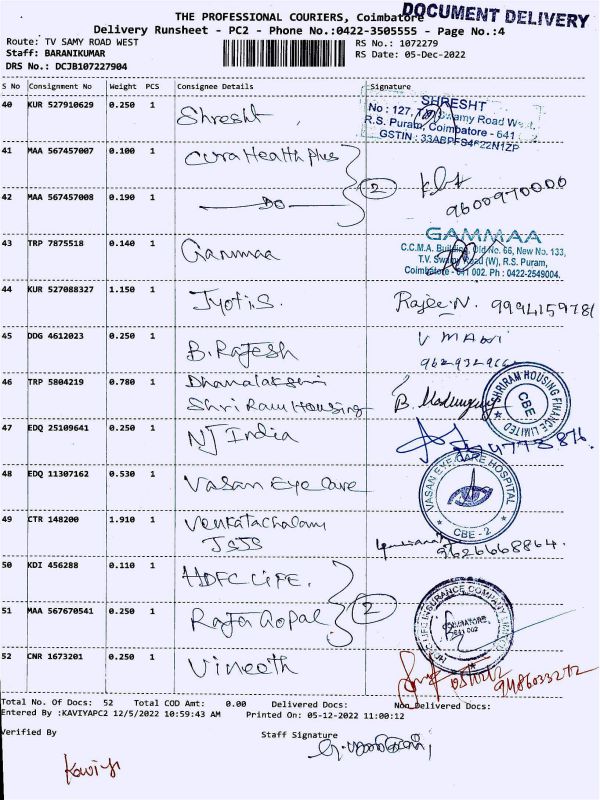 THE PROFESSIONAL COURIERS, Coimbatore
DOCUMENT DELIVERY
Delivery Runsheet - PC2 - Phone No.:0422-3505555 - Page No.:4
Route: TV SAMY ROAD WEST
RS No.: 1072279
Staff: BARANIKUMAR
RS Date: 05-Dec-2022
DRS No.: DCJB107227904
S No Consignment No Weight PCS Consignee Details Signature
40 KUR 527910629 0.250 1 Shresht
SHRESHT
No : 127, T.V. Swamy Road West,
R.S. Puram, Coimbatore - 641
GSTIN : 33ABPFS4F22N1ZP
41 MAA 567457007 0.100 1 Cura Health Plus
2
42 MAA 567457008 0.190 1 DO
9600970000
43 TRP 7875518 0.140 1 Gammaa
GAMMAA
C.C.M.A. Building, Old No. 66, New No. 133,
T.V. Swamy Road (W), R.S. Puram,
Coimbatore - 641 002. Ph : 0422-2549004.
44 KUR 527088327 1.150 1 Jyoti S. Rajee N. 9994159781
45 DDG 4612023 0.250 1 B. Rajesh V MANI
46 TRP 5804219 0.780 1 Dhanalakshmi
Shri Ram Housing B.
SHRIRAM HOUSING FINANCE LIMITED
CBE
47 EDQ 25109641 0.250 1 NJ India
48 EDQ 11307162 0.530 1 Vasan Eye Care
VASAN EYE CARE HOSPITAL
CBE - 2
49 CTR 148200 1.910 1 Venkatachalam
JSJS
9626668864.
50 KDI 456288 0.110 1 HDFC LIFE.
2
HDFC LIFE INSURANCE COMPANY LIMITED
COIMBATORE
641 002
51 MAA 567670541 0.250 1 Raja Gopal
52 CNR 1673201 0.250 1 Vineeth
9486033272
Total No. Of Docs: 52 Total COD Amt: 0.00 Delivered Docs: Non Delivered Docs:
Entered By :KAVIYAPC2 12/5/2022 10:59:43 AM Printed On: 05-12-2022 11:00:12
Verified By Staff Signature
Kaviya